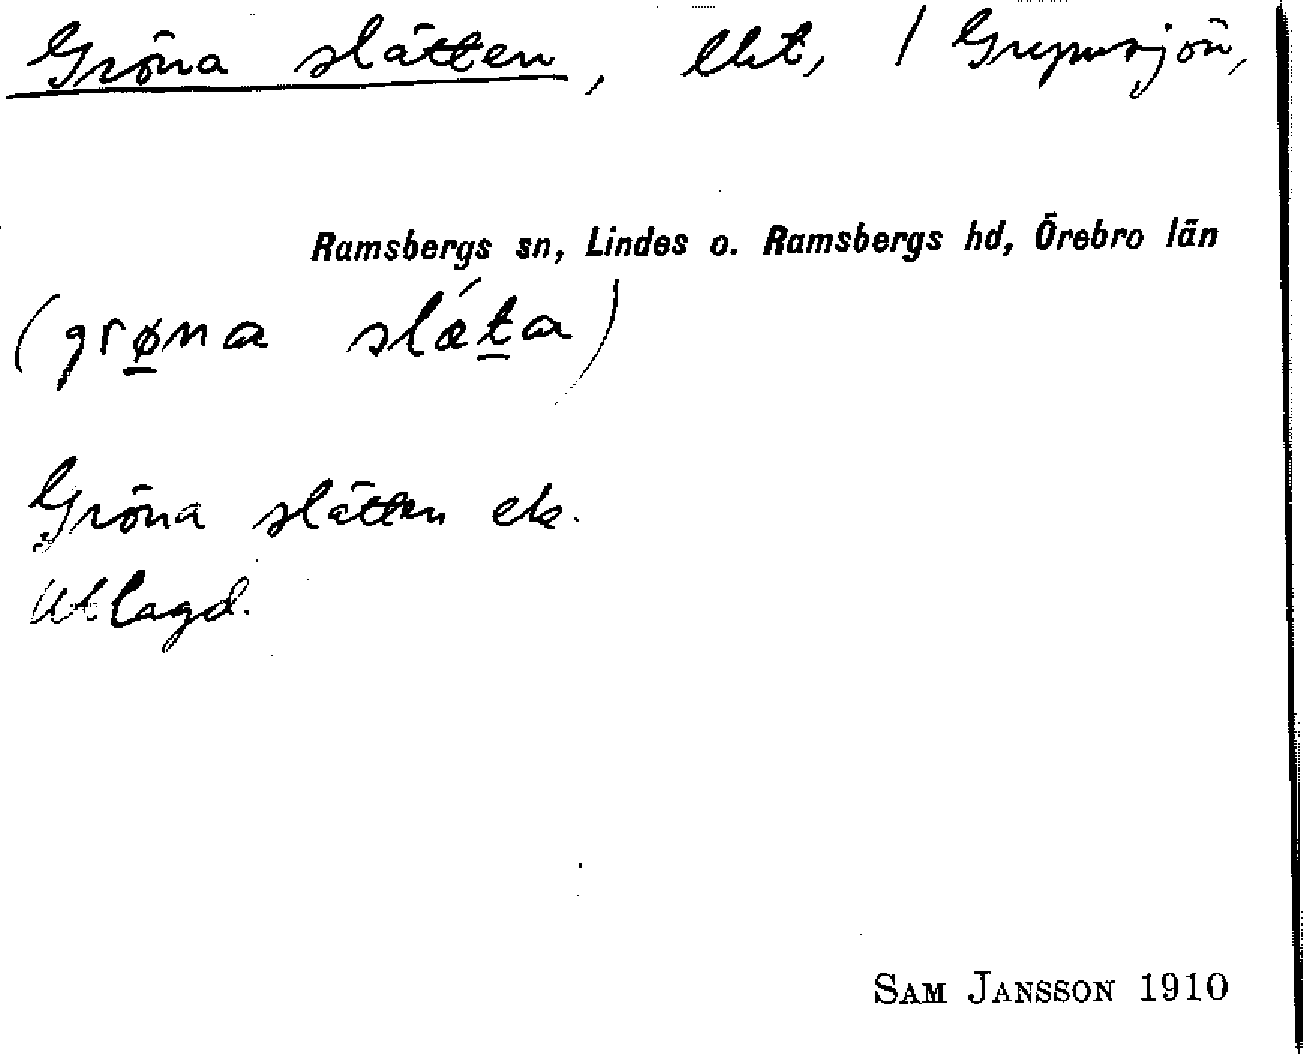 Gröna slätten, lht, / Grepnsjön,
Ramsbergs sn, Lindes o. Ramsbergs hd, Örebro län
(grøna slǽta)
Gröna slätten ek.
Utlagd.
SAM JANSSON 1910